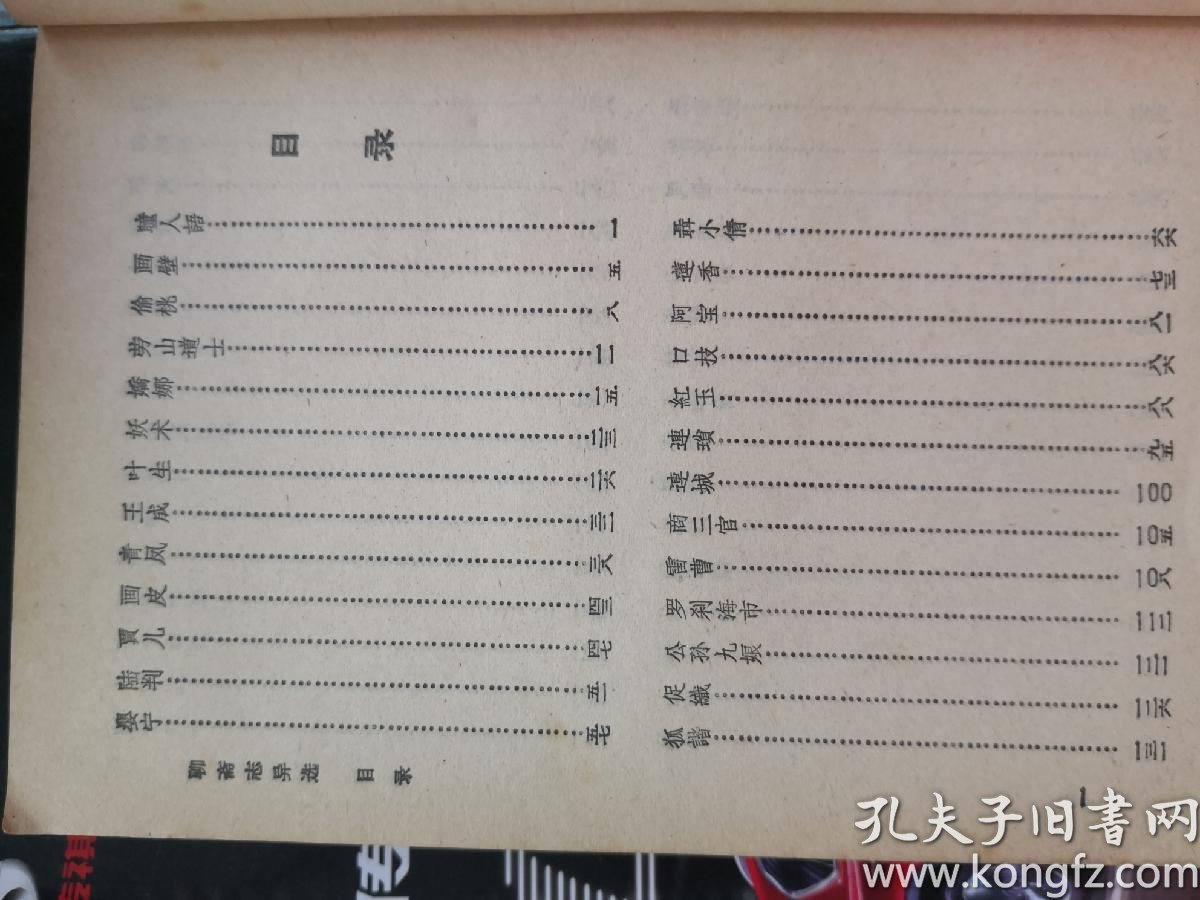 目录
瞳人語……一
画壁……五
偷桃……八
劳山道士……一一
嬌娜……一五
妖术……二三
叶生……二六
王成……三一
青凤……三八
画皮……四三
賈儿……四七
陆判……五一
嬰宁……五七
聶小倩……六六
蓮香……七三
阿宝……八一
口技……八六
紅玉……八八
連瑣……九五
連城……一〇〇
商三官……一〇五
雷曹……一〇八
罗刹海市……一一三
公孙九娘……一二一
促織……一二六
狐諧……一三一
聊斋志异选 目录
一
孔夫子旧書网
www.kongfz.com